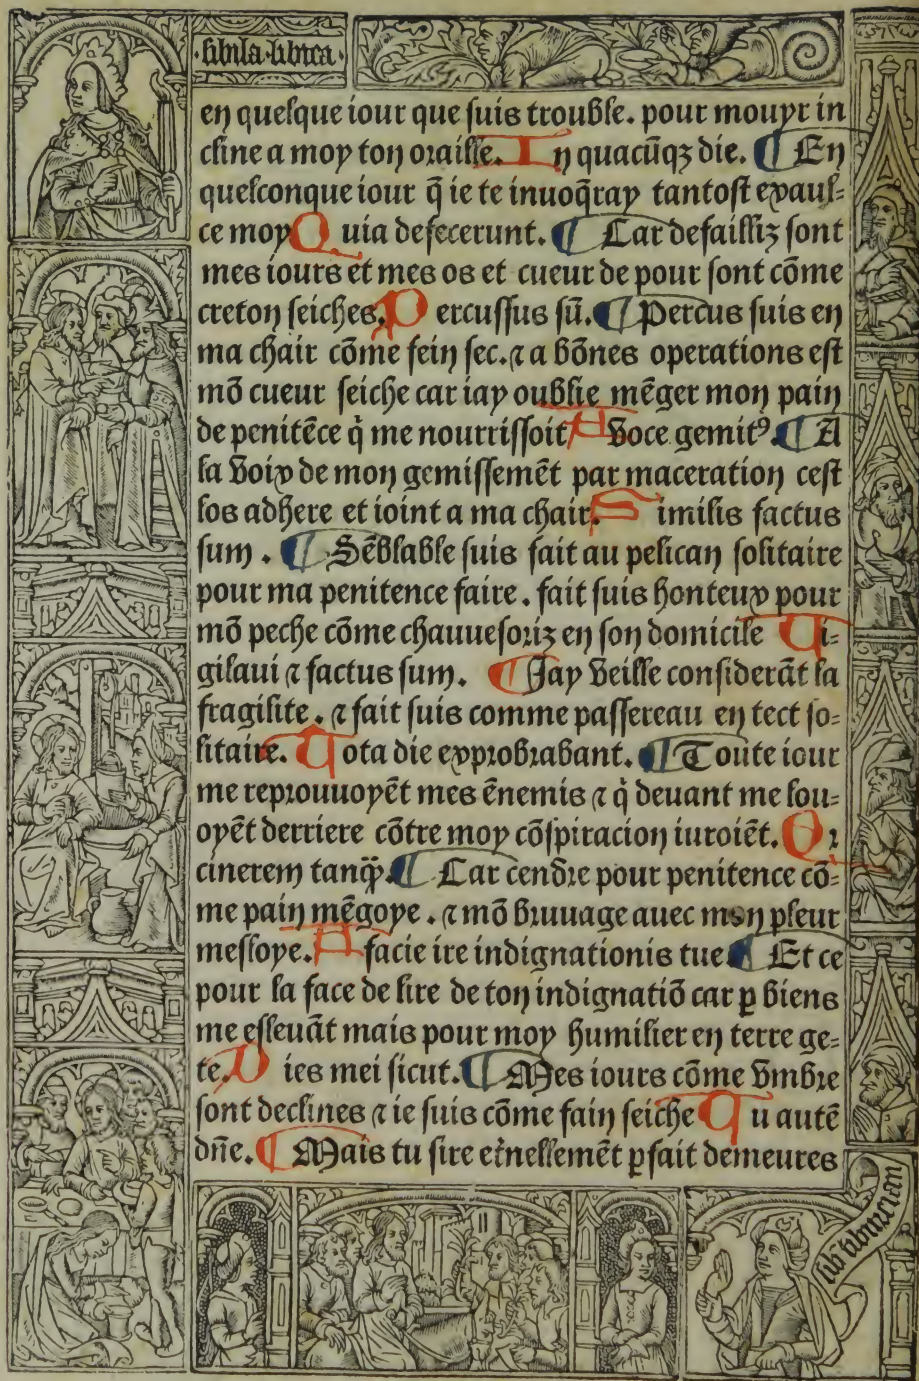 sibila libica
en quelque iour que suis trouble. pour mouyr in
cline a moy ton oraille. In quacūqꝫ die. ¶ En
quelconque iour q̄ ie te inuoq̄ray tantost exaul-
ce moy Quia defecerunt. ¶ Car defailliz sont
mes iours et mes os et cueur de pour sont cōme
creton seiches. Percussus sū. ¶ Percus suis en
ma chair cōme fein sec. ⁊ a bōnes operations est
mō cueur seiche car iay oublie mēger mon pain
de penitēce q̇ me nourrissoit A voce gemitꝰ. ¶ A
la voix de mon gemissemēt par maceration cest
los adhere et ioint a ma chair. Similis factus
sum. ¶ Sēblable suis fait au pelican solitaire
pour ma penitence faire. fait suis honteux pour
mō peche cōme chauuesoriz en son domicile Vi-
gilaui ⁊ factus sum. ¶ Jay veille considerāt la
fragilite. ⁊ fait suis comme passereau en tect so-
litaire. Tota die exprobrabant. ¶ Toute iour
me reprouuoyēt mes ēnemis ⁊ q̇ deuant me lou-
oyēt derriere cōtre moy cōspiracion iuroiēt. Qr
cinerem tanq̄. ¶ Car cendre pour penitence cō-
me pain mēgoye. ⁊ mō bruuage auec mon pleur
mesloye. A facie ire indignationis tue ¶ Et ce
pour la face de lire de ton indignatiō car ꝑ biens
me esleuāt mais pour moy humilier en terre ge-
te. Dies mei sicut. ¶ Mes iours cōme vmbre
sont declines ⁊ ie suis cōme fain seiche Tu autē
dn̄e. ¶ Mais tu sire et̄nellemēt ꝑfait demeures